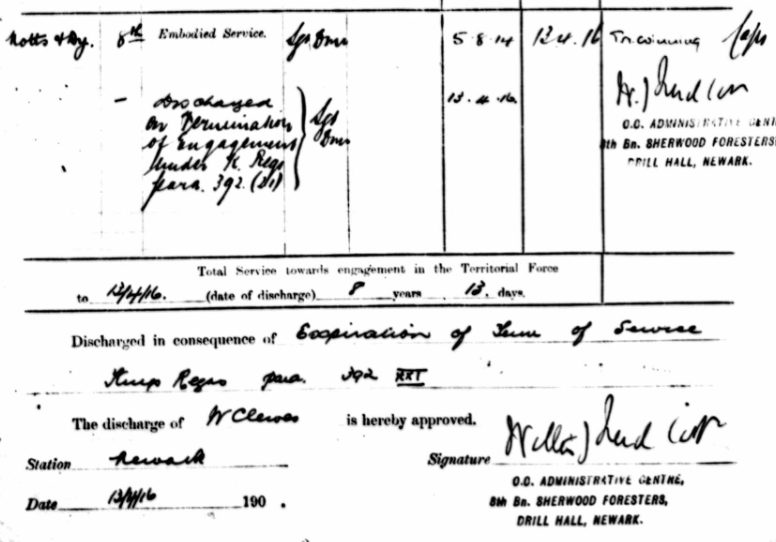 Notts & Dy. 8th Embodied Service. Sgt Dmr 5.8.14 12.4.16
— Discharged 13.4.16.
on Termination Sgt
of Engagement Dmr
under K. Regs
para. 392. (21)
O.C. ADMINISTRATIVE CENTRE
8th Bn. SHERWOOD FORESTERS,
DRILL HALL, NEWARK.
Total Service towards engagement in the Territorial Force
to 13/4/16. (date of discharge) 8 years 13. days.
Discharged in consequence of Expiration of Term of Service
Kings Regns para. 392 XXI
The discharge of W Clewes is hereby approved.
Station Newark Signature
Date 13/4/16 190 .
O.C. ADMINISTRATIVE CENTRE,
8th Bn. SHERWOOD FORESTERS,
DRILL HALL, NEWARK.